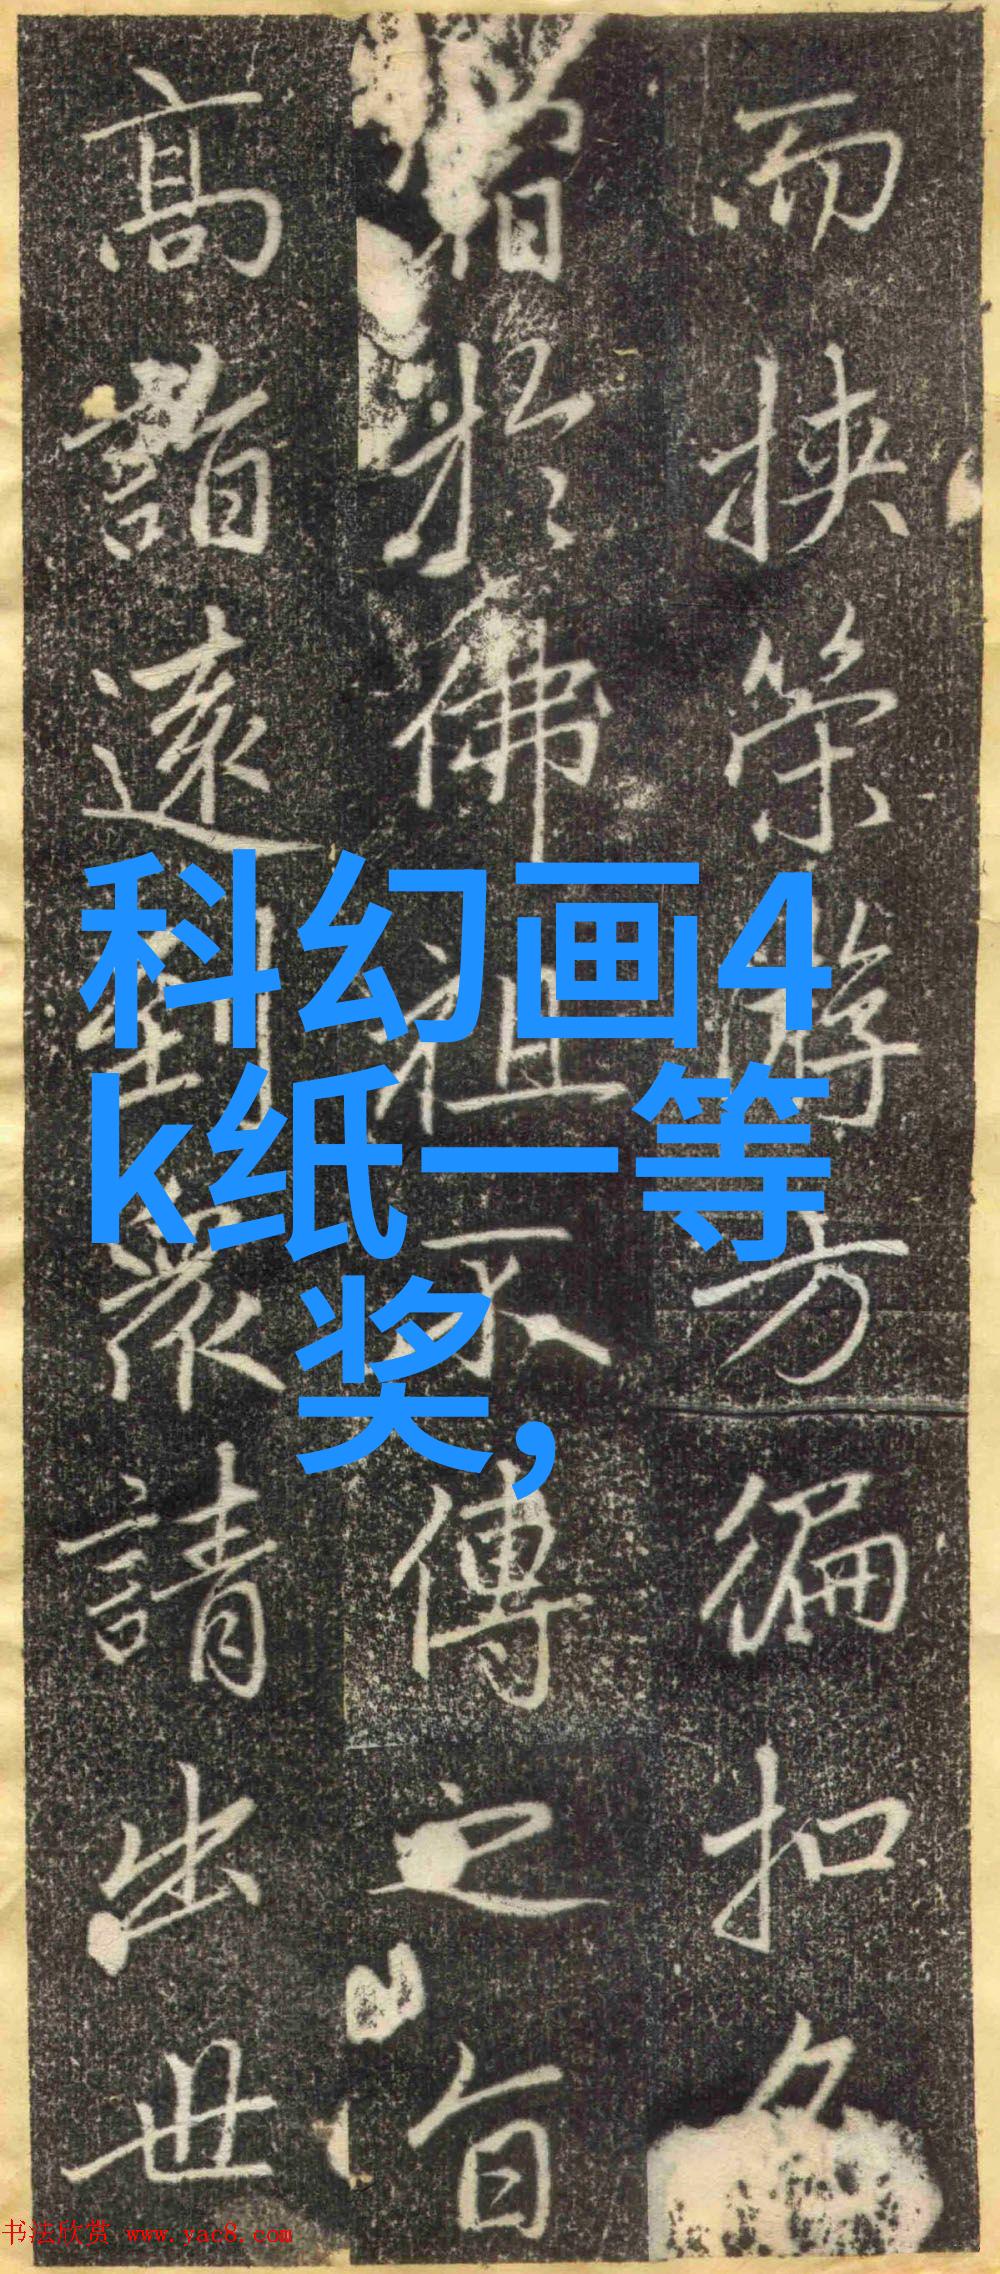 而挟策游方徧扣名
宿於佛祖不傳之旨
高詣遠到衆請出世
科幻画4
k纸一等
奖，
书法欣赏 www.yac8.com